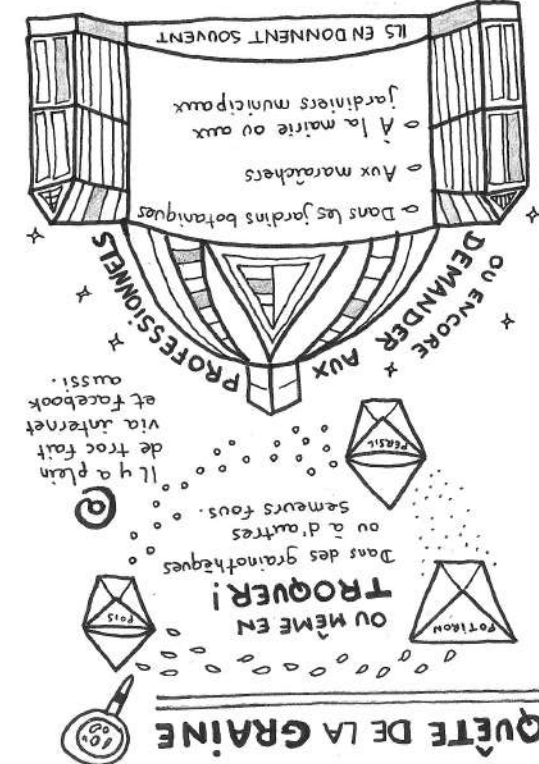 QUÊTE DE LA GRAINE
POTIRON
POIS
OU MÊME EN
TROQUER !
Dans des grainothèques
ou à d'autres
semeurs fous.
@
Il y a plein
de troc fait
via internet
et Facebook
aussi.
PERSIL
OU ENCORE
DEMANDER AUX PROFESSIONNELS
Dans les jardins botaniques
Aux maraîchers
À la mairie ou aux
jardiniers municipaux
ILS EN DONNENT SOUVENT